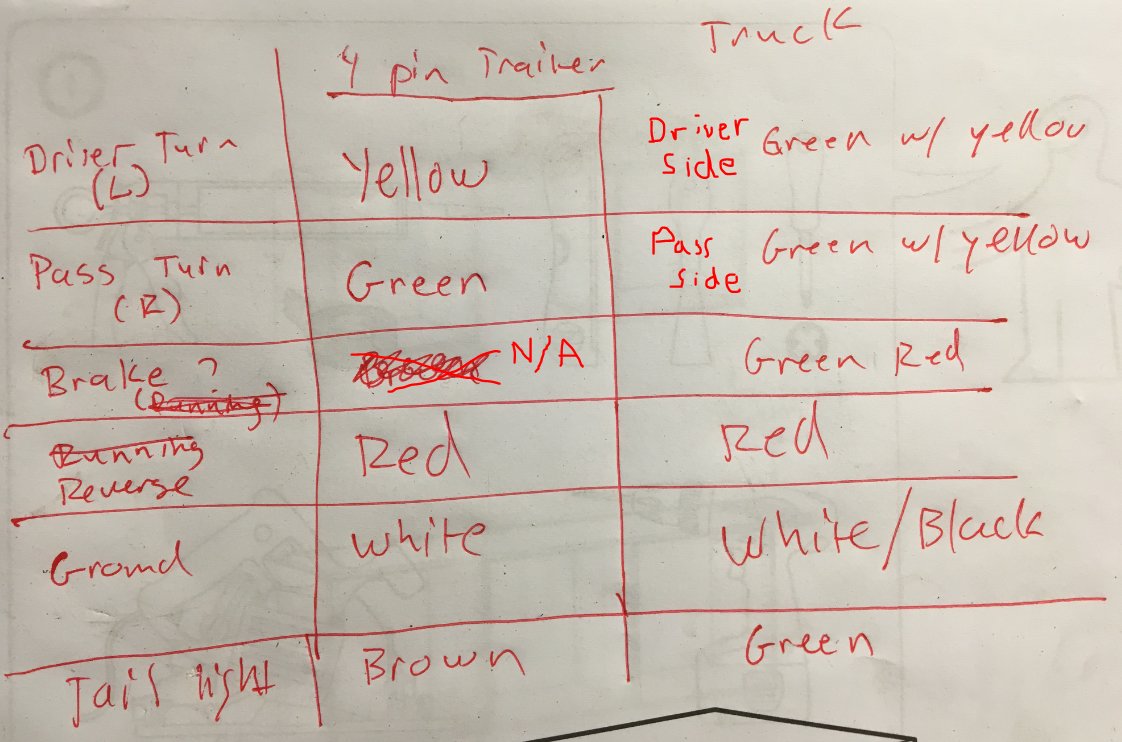 Truck
4 pin Trailer
Driver Turn
(L)
Yellow
Driver
side
Green w/ yellow
Pass Turn
(R)
Green
Pass
side
Green w/ yellow
Brake ?
(Running)
N/A
Green Red
Running
Reverse
Red
Red
Ground
white
White/Black
Tail light
Brown
Green